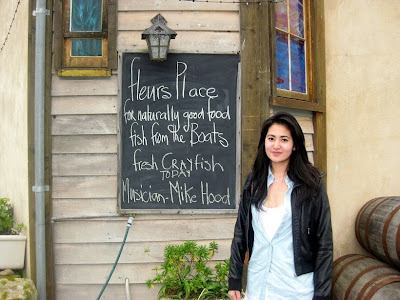 fleurs Place
for naturally good food
fish from the Boats
fresh CRAYfish
TODAY
Musician - Mike Hood